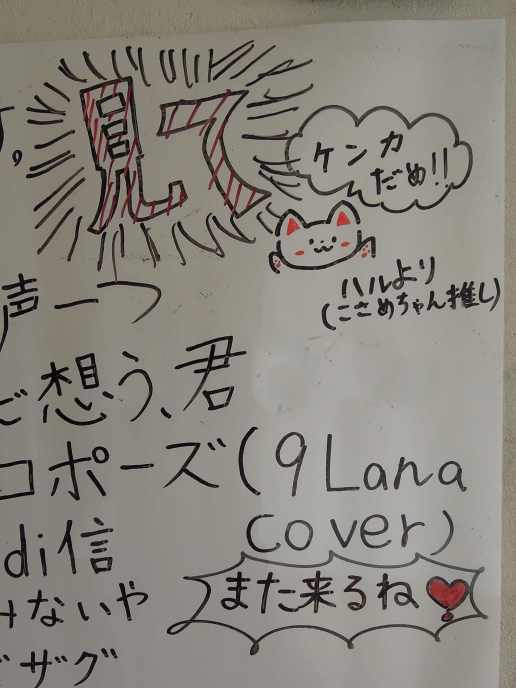 見て
ケンカ
だめ!!
ハルより
(こさめちゃん推し)
声一つ
想う、君
ロポーズ(9Lana
cover)
di信
みないや
ザグ
また来るね